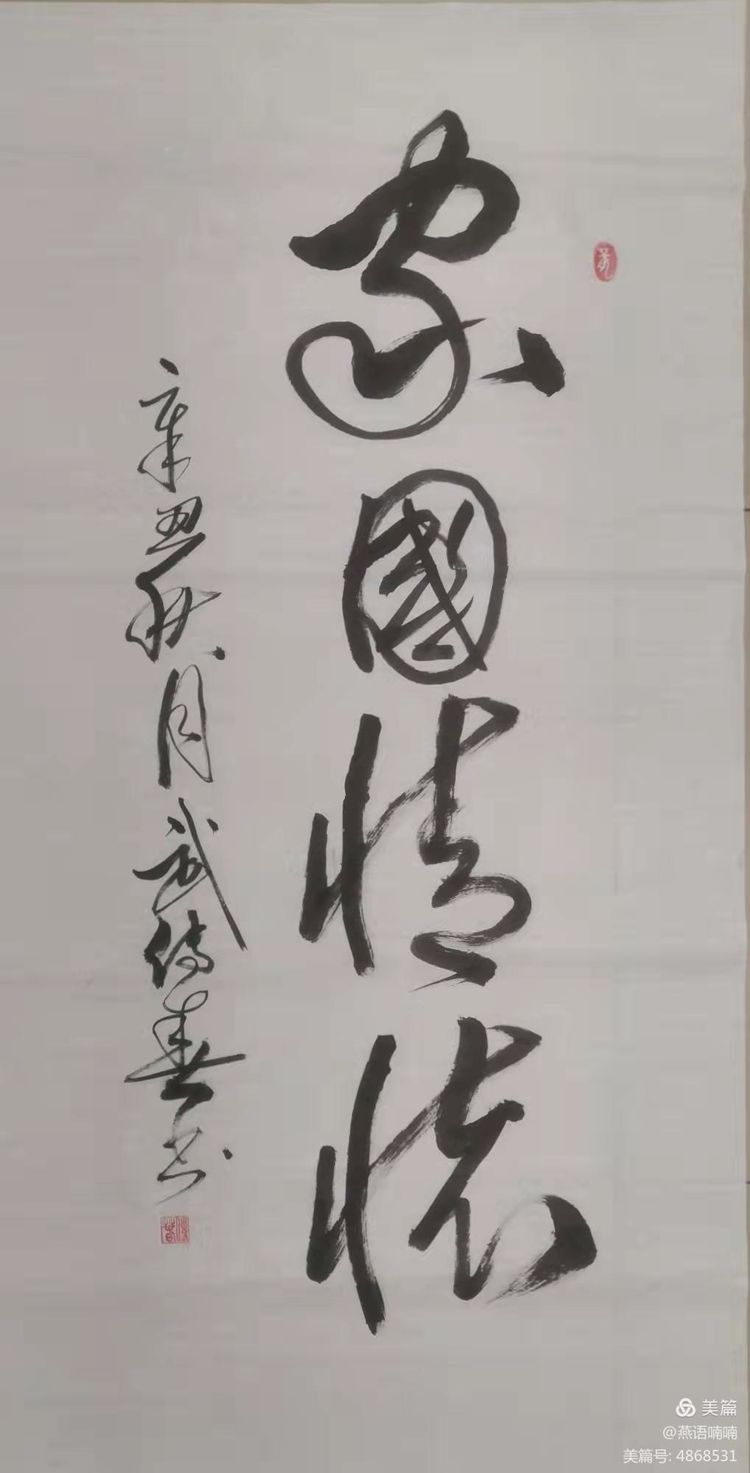 家國情懷
辛丑秋月武传春书
美篇
@燕语喃喃
美篇号: 4868531